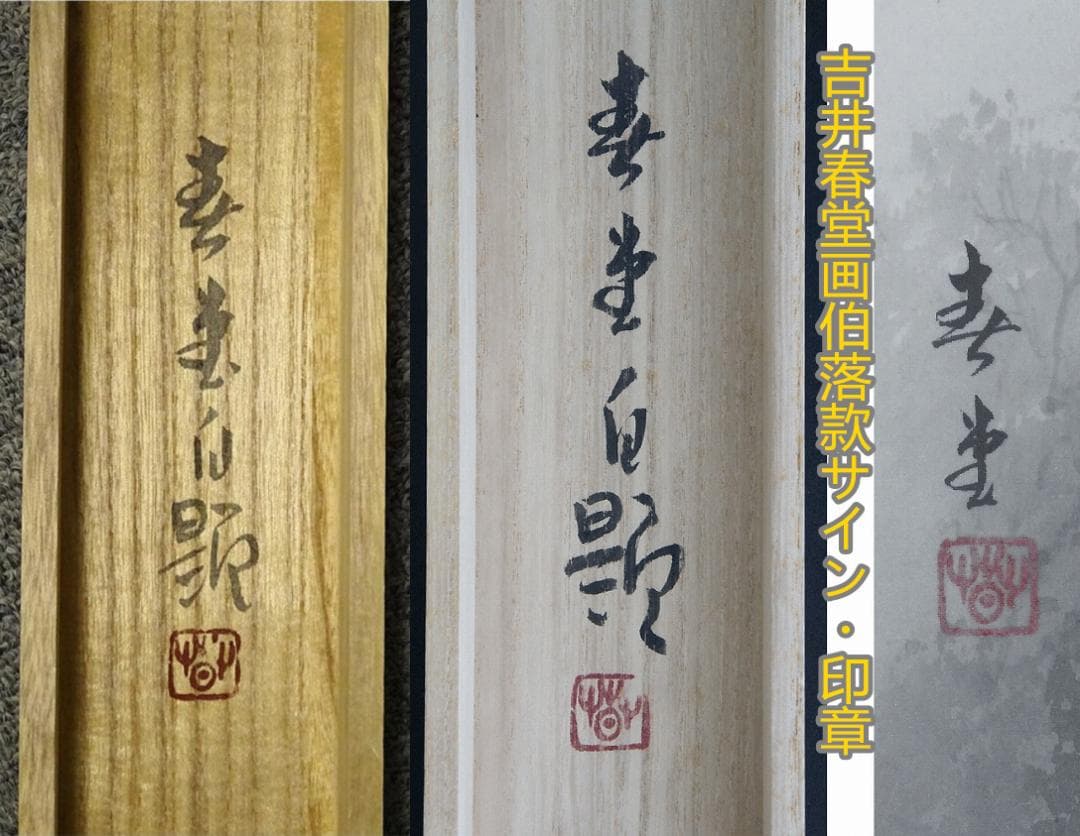 春堂自題
春堂自題
吉井春堂画伯落款サイン・印章
春堂